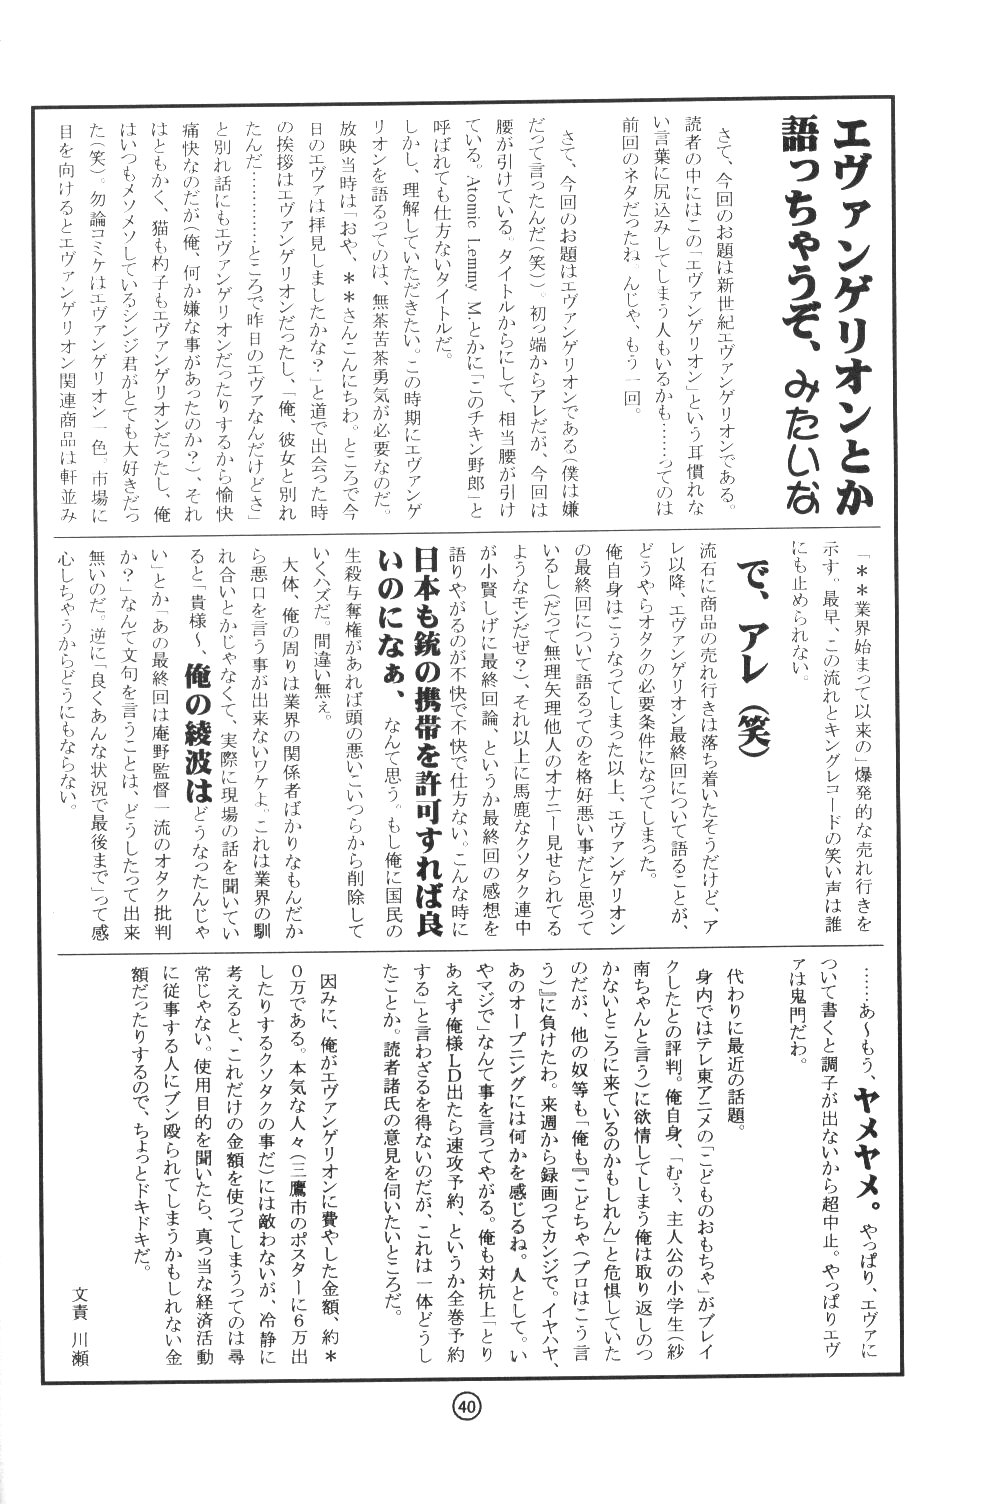 エヴァンゲリオンとか
語っちゃうぞ、みたいな
さて、今回のお題は新世紀エヴァンゲリオンである。
読者の中にはこの「エヴァンゲリオン」という耳慣れな
い言葉に尻込みしてしまう人もいるかも……ってのは
前回のネタだったね。んじゃ、もう一回。
さて、今回のお題はエヴァンゲリオンである(僕は嫌
だって言ったんだ(笑))。初っ端からアレだが、今回は
腰が引けている。タイトルからにして、相当腰が引け
ている。Atomic Lemmy Mとかに「このチキン野郎」と
呼ばれても仕方ないタイトルだ。
しかし、理解していただきたい。この時期にエヴァンゲ
リオンを語るってのは、無茶苦茶勇気が必要なのだ。
放映当時は「おや、＊＊さんこんにちわ。ところで今
日のエヴァは拝見しましたかな?」と道で出会った時
の挨拶はエヴァンゲリオンだったし、「俺、彼女と別れ
たんだ…………ところで昨日のエヴァなんだけどさ」
と別れ話にもエヴァンゲリオンだったりするから愉快
痛快なのだが(俺、何か嫌な事があったのか?)、それ
はともかく、猫も杓子もエヴァンゲリオンだったし、俺
はいつもメソメソしているシンジ君がとても大好きだっ
た(笑)。勿論コミケはエヴァンゲリオン一色。市場に
目を向けるとエヴァンゲリオン関連商品は軒並み
「＊＊業界始まって以来の」爆発的な売れ行きを
示す。最早、この流れとキングレコードの笑い声は誰
にも止められない。
で、アレ(笑)
流石に商品の売れ行きは落ち着いたそうだけど、ア
レ以降、エヴァンゲリオン最終回について語ることが、
どうやらオタクの必要条件になってしまった。
俺自身はこうなってしまった以上、エヴァンゲリオン
の最終回について語るってのを格好悪い事だと思って
いるし(だって無理矢理他人のオナニー見せられてる
ようなモンだぜ?)、それ以上に馬鹿なクソタク連中
が小賢しげに最終回論、というか最終回の感想を
語りやがるのが不快で不快で仕方ない。こんな時に
日本も銃の携帯を許可すれば良
いのになぁ、なんて思う。もし俺に国民の
生殺与奪権があれば頭の悪いこいつらから削除して
いくハズだ。間違い無ぇ。
大体、俺の周りは業界の関係者ばかりなもんだか
ら悪口を言う事が出来ないワケよ。これは業界の馴
れ合いとかじゃなくて、実際に現場の話を聞いてい
ると「貴様〜、俺の綾波はどうなったんじゃ
い」とか「あの最終回は庵野監督一流のオタク批判
か?」なんて文句を言うことは、どうしたって出来
無いのだ。逆に「良くあんな状況で最後まで」って感
心しちゃうからどうにもならない。
……あ〜もう、ヤメヤメ。やっぱり、エヴァに
ついて書くと調子が出ないから超中止。やっぱりエヴ
ァは鬼門だわ。
代わりに最近の話題。
身内ではテレ東アニメの「こどものおもちゃ」がブレイ
クしたとの評判。俺自身、「むう、主人公の小学生(紗
南ちゃんと言う)に欲情してしまう俺は取り返しのつ
かないところに来ているのかもしれん」と危惧していた
のだが、他の奴等も「俺も『こどちゃ(プロはこう言
う)』に負けたわ。来週から録画ってカンジで。イヤハヤ、
あのオープニングには何かを感じるね。人として。い
やマジで」なんて事を言ってやがる。俺も対抗上「とり
あえず俺様LD出たら速攻予約、というか全巻予約
する」と言わざるを得ないのだが、これは一体どうし
たことか。読者諸氏の意見を伺いたいところだ。
因みに、俺がエヴァンゲリオンに費やした金額、約＊
0万である。本気な人々(三鷹市のポスターに6万出
したりするクソタクの事だ)には敵わないが、冷静に
考えると、これだけの金額を使ってしまうってのは尋
常じゃない。使用目的を聞いたら、真っ当な経済活動
に従事する人にブン殴られてしまうかもしれない金
額だったりするので、ちょっとドキドキだ。
文責 川瀬
40